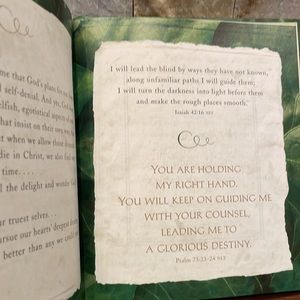 me that God's plans for
d self-denial. And yes, God
elfish, egotistical aspects of
that insist on their own way,
t when we allow those
die in Christ, we also find
n time. . . .
l the delight and wonder
ur truest selves. . .
ursue our hearts' deepest
better than any we could
I will lead the blind by ways they have not known,
along unfamiliar paths I will guide them;
I will turn the darkness into light before them
and make the rough places smooth."
Isaiah 42:16 NIV
YOU ARE HOLDING
MY RIGHT HAND.
YOU WILL KEEP ON GUIDING ME
WITH YOUR COUNSEL,
LEADING ME TO
A GLORIOUS DESTINY.
Psalm 73:23–24 NLT